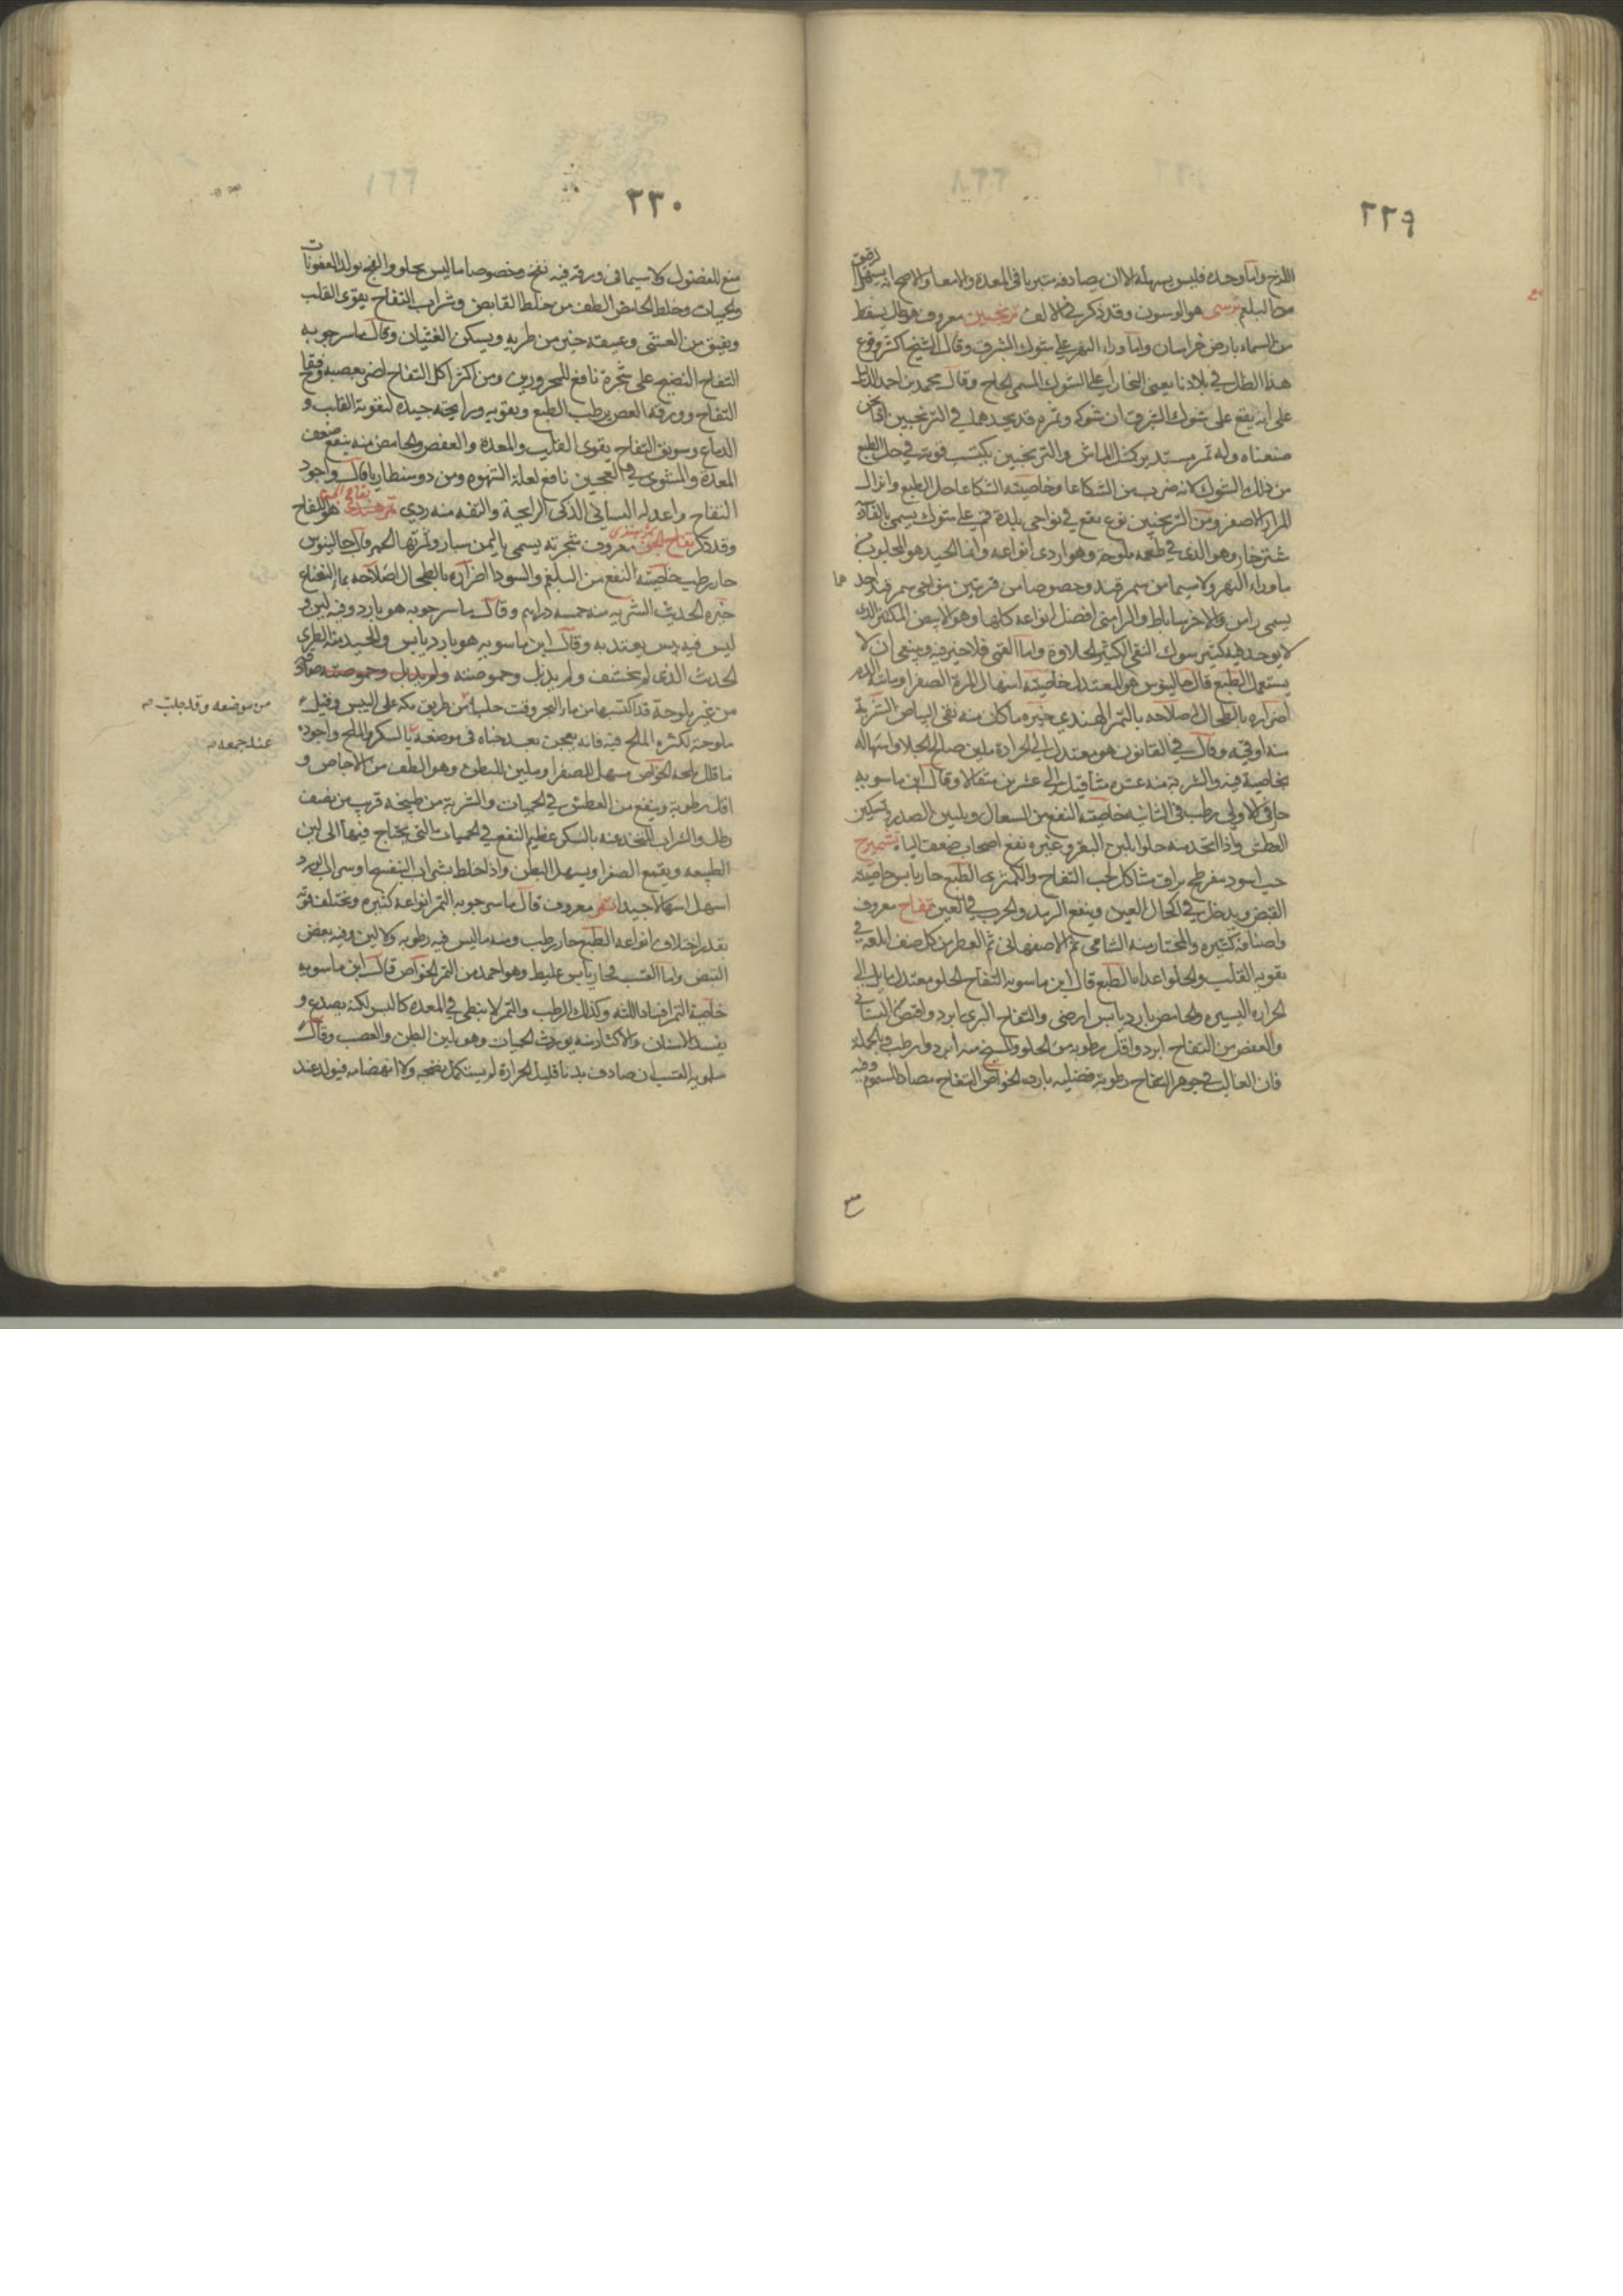 ٢٢٩
اللزج واما وحده فليس يسهله الا ان يصادفه متبريا في المعدة والامعا والاصح انه يسهل الرقيق
من البلغم ترسى هو الوسون وقد ذكر في الالف ترنجبين معروف هو طل يسقط
من السماء بارض خراسان وما وراء النهر على شوك الشرق وقال الشيخ اكثر وقوع
هذا الطل في بلادنا يعني البخارا على الشوك المسمى الحاج وقال محمد بن احمد
على انه يقع على شوك الشرق ان شوكه وثمره قد يجدهما في الترنجبين
صنعناه وله ثمر مستدير كمثل الماش والترنجبين يكتسب قوته في حل الطبع
من ذلك الشوك لانه ضرب من الشكاعا وخاصيته الشكاعا حل الطبع وانزال
المرار الاصفر ومن الترنجبين نوع يقع في نواحي بلدة قم على شوك يسمى بالفارسية
شترخار وهو الذي في طعمه ملوحة وهو اردى انواعه واما الجيد هو المجلوب من
ما وراء النهر ولا سيما من سمرقند وخصوصا من قريتين من نواحي سمرقند احدهما
يسمى رامن والاخر ساباط والرامني افضل انواعه كلها وهو الابيض المكتنز الذي
لا يوجد فيه كثير شوك النقي الكثير الحلاوة واما العتيق فلا خير فيه وينبغي ان لا
يستعمل الطبع قال جالينوس هو المعتدل خاصيته اسهال المرة الصفرا ومات الدم
اضراره بالطحال اصلاحه بالتمر الهندي خيره ما كان منه نقي البياض الشربة
منه اوقية وقال في القانون هو معتدل الى الحرارة ملين صالح الجلا واسهاله
بخاصية فيه والشربة منه عشرة مثاقيل الى عشرين مثقالا وقال ابن ماسويه
حار في الاولى رطب في الثانية خاصيته النفع من السعال ويلين الصدر وتسكين
العطش واذا اتخذ منه حلوا بلبن البقر وغيره نفع اصحاب ضعف الباه تشميزج
حب اسود مفرطح براق مشاكل لحب التفاح والكمثرى الطبع حار يابس خاصيته
القبض ويدخل في اكحال العين وينفع الرمد والجرب في العين تفاح معروف
واصنافه كثيره والمختار منه الشامي ثم الاصفهاني ثم العطر من كل صنف ابلغه في
تقوية القلب والحلو اعدلها الطبع قال ابن ماسويه التفاح الحلو معتدل مايل الى
الحرارة اليسيره والحامض بارد يابس ارضي والتفاح البري ابرد واقبض من البستاني
والعفص من التفاح ابرد واقل رطوبة من الحلو والمسيخ منه ابرد وارطب وبالجملة
فان الغالب في جوهر التفاح رطوبة فضلية باردة الخواص التفاح مضاد السموم وفيه
٢٣٠
منع للفضول ولا سيما في ورقه فيه نفخ وخصوصا ما ليس بحلو والفج يولد العفونات
والحميات وخلط الحامض الطف من خلط القابض وشراب التفاح يقوى القلب
ويفيق من الغشي وعتيقه خير من طريه ويسكن الغثيان وقال ماسرجويه
التفاح النضيج على شجرة نافع للمحرورين ومن اكثر اكل التفاح اضر بعصبه وفقاح
التفاح وورقه الغض يرطب الطبع ويقويه ورايحته جيدة لتقوية القلب و
الدماغ وسويق التفاح يقوي القلب والمعدة والعفص والحامض منه ينفع ضعف
المعدة والمشوي في العجين نافع لعلة الشهوه ومن دوسنطاريا قال واجود
التفاح واعدله البستاني الذكي الرايحة والتفه منه ردي تفاح الجن هو اللفاح
وقد ذكر تمر هندي معروف شجرته يسمى باليمن سبار وثمرتها الحمر قال جالينوس
حار رطب خاصيته النفع من البلغم والسودا اضراره بالطحال اصلاحه بماء النعناع
خيره الحديث الشربة منه خمسة دراهم وقال ماسرجويه هو بارد وفيه لين و
ليس فيه يبس يعتد به وقال ابن ماسويه هو بارد يابس والجيد منه الطري
الحديث الذي لم يتحشف ولم يذبل وحموضته ولم يذبل وحموضته صادقة
من غير ملوحة قد اكتسبها من ماء البحر وقت جلب من طريق مكة على اليبس وقيل
ملوحته لكثرة الملح فيه فانه يعجن بعد جناه في موضعه بالسكر والملح واجوده
من موضعه وقد جلب صح
عند جمعه صح
ما قل ملحه الخواص مسهل للصفرا وملين للبطن وهو الطف من الاجاص و
اقل رطوبة وينفع من العطش في الحميات والشربة من طبيخه قريب من نصف
رطل والشراب المتخذ عنه بالسكر عظيم النفع في الحميات التي يحتاج فيها الى لين
الطبيعه ويقمع الصفرا ويسهل البطن واذا خلط بشراب البنفسج او شراب الورد
اسهل اسهالا جيدا تمر معروف قال ماسرجويه التمر انواعه كثيره ويختلف قوته
بقدر اختلاف انواعه الطبع حار رطب ومنه ما ليس فيه رطوبه ولا لين وفيه بعض
القبض واما القسب فحار يابس غليظ وهو احمد من التمر الخواص قال ابن ماسويه
خاصية التمر افساد اللثه وكذلك الرطب والتمر لا يبطي في المعدة كالبسر لكنه يصدع و
يفسد الاسنان والاكثار منه يورث الحميات وهو يلين البطن والعصب وقال
سلمويه القسب ان صادف بدنا قليل الحرارة لم يستكمل نضجه ولا انهضامه فيولد عند